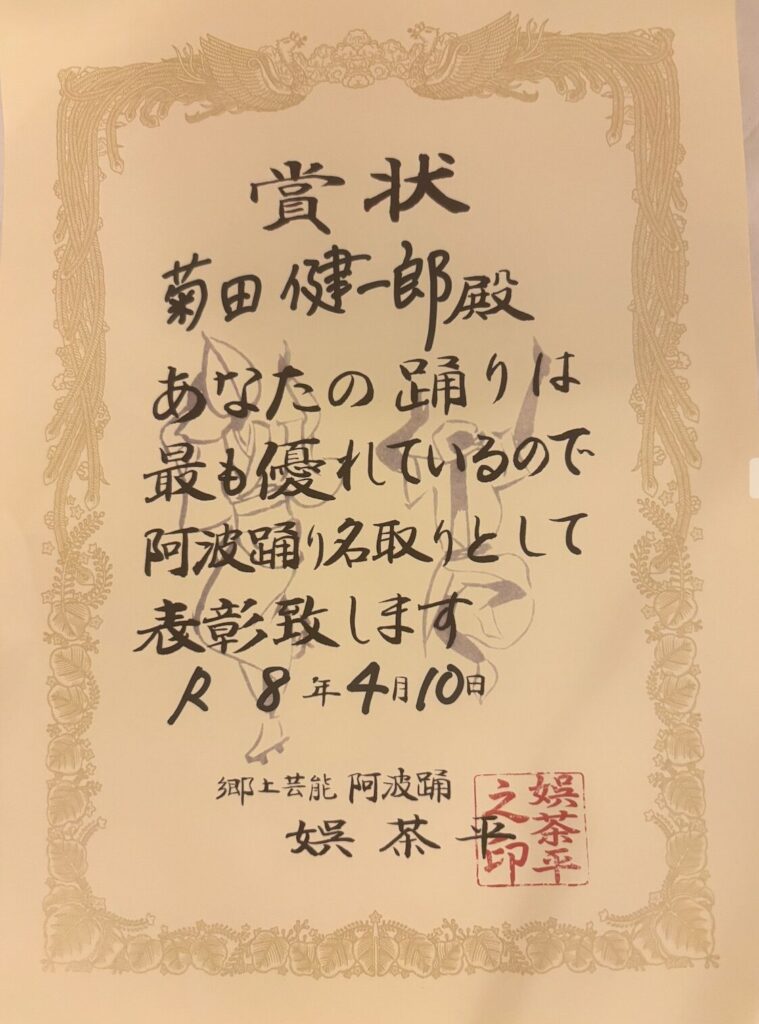 賞状
菊田健一郎殿
あなたの踊りは
最も優れているので
阿波踊り名取りとして
表彰致します
R 8年4月10日
郷土芸能 阿波踊
娯茶平
娯茶平
之印